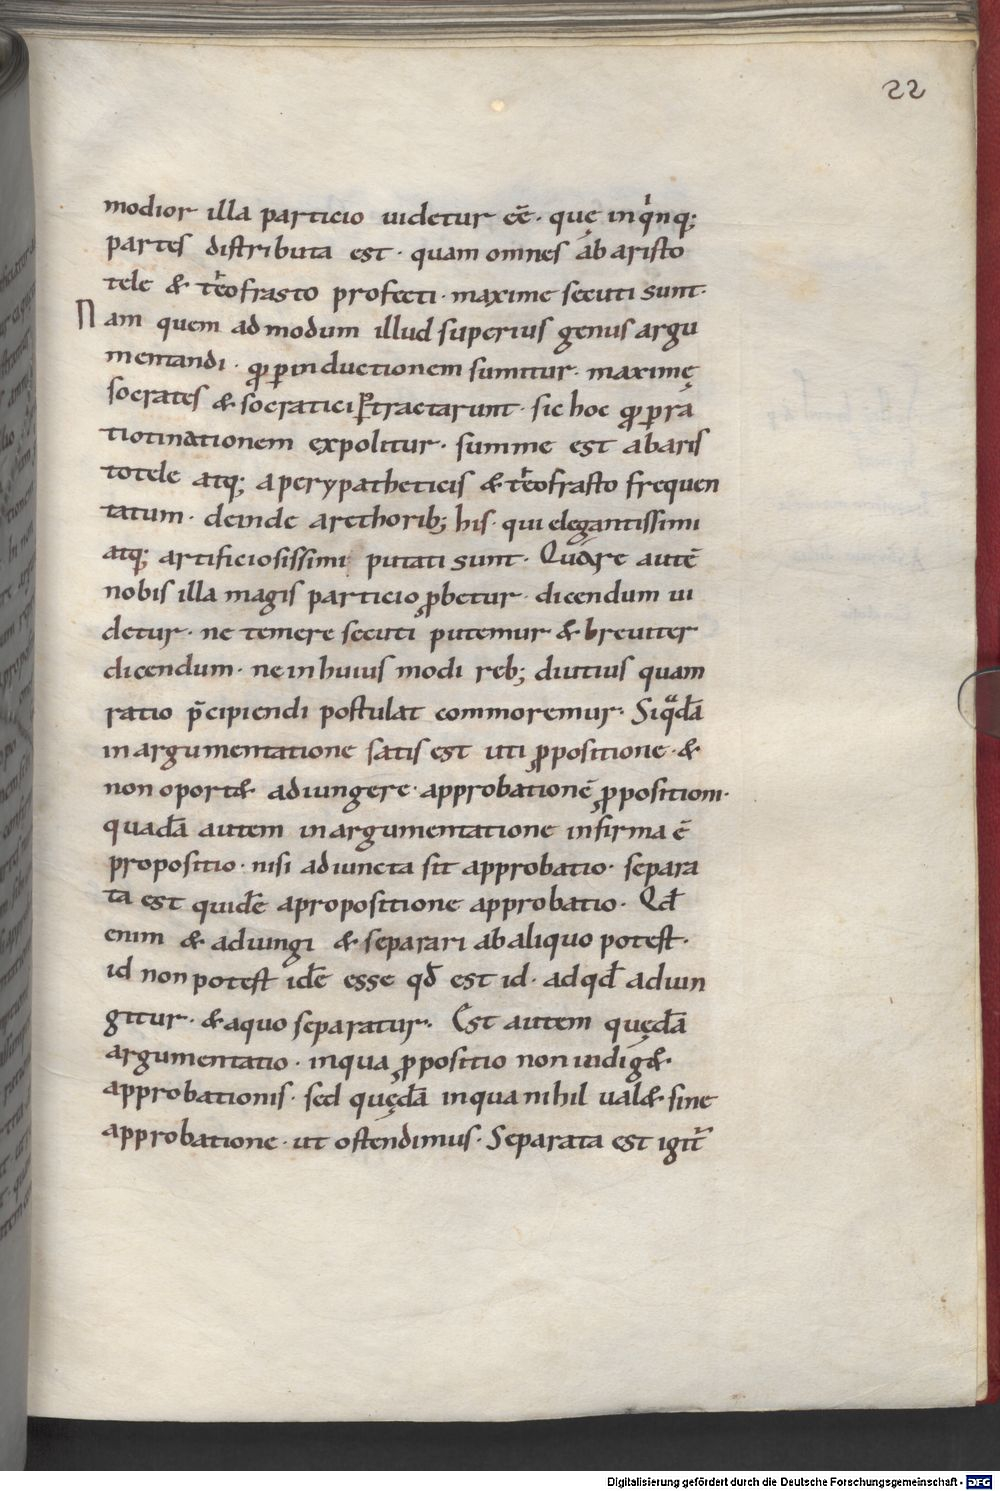 22
modior illa particio uidetur eē· quę inq̍nq;
partes distributa est· quam omnes ab aristo
tele & teofrasto profecti· maxime secuti sunt·
Nam quem ad modum illud superius genus argu
mentandi· ꝙ ꝑ inductionem sumitur· maximę
socrates & socratici ꝑtractarunt· sic hoc ꝙ ꝑ ra
tiotinationem expolitur· summe est ab aris
totele atq; a perypatheticis & teofrasto frequen
tatum· deinde a rethorib; his· qui elegantissimi
atq; artificiosissimi putati sunt· Quare autē
nobis illa magis particio ꝓbetur· dicendum ui
detur· ne temere secuti putemur & breuiter
dicendum· ne in huius modi reb; diutius quam
ratio p̄cipiendi postulat commoremur· Siqdā
in argumentatione satis est uti ꝓpositione· &
non oport& adiungere· approbationē ꝓpositioni·
quadā autem in argumentatione infirma ē
propositio· nisi adiuncta sit approbatio· separa
ta est quidē a propositione approbatio· Qđ
enim & adiungi & separari ab aliquo potest·
id non potest idē esse qđ est id· ad qđ adiun
gitur· & a quo separatur· Est autem quędā
argumentatio· in qua ꝓpositio non indig&·
approbationis· sed quędā in qua nihil ual& sine
approbatione· ut ostendimus· Separata est igit̄
Digitalisierung gefördert durch die Deutsche Forschungsgemeinschaft - DFG